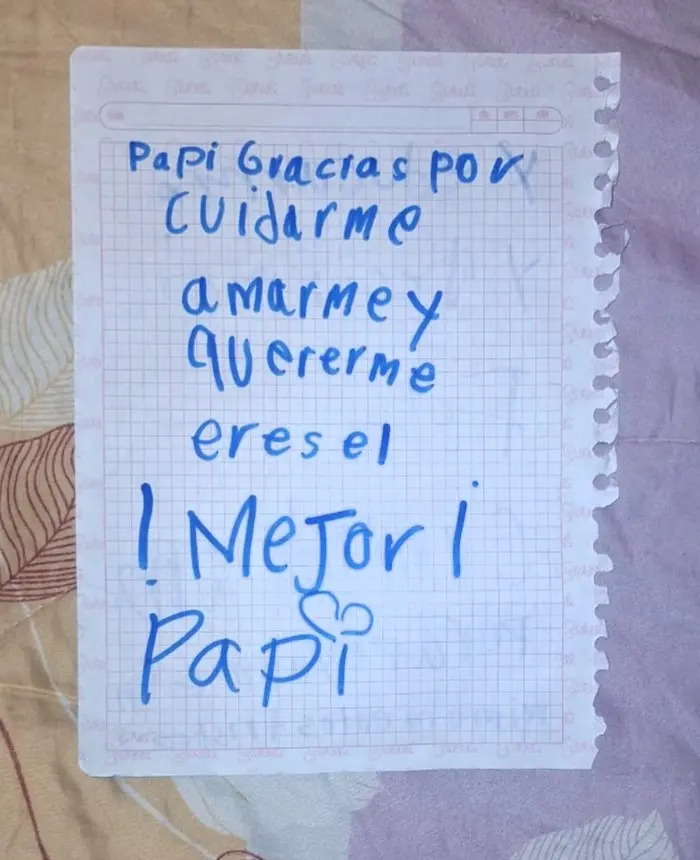 Papi Gracias por
cuidarme
amarme y
quererme
eres el
! Mejor ¡
Papi